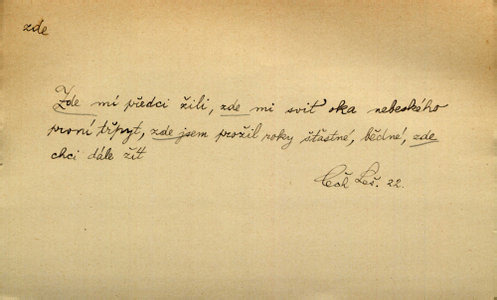 zde
Zde mí předci žili, zde mi svit oka nebeského
první třpyt, zde jsem prožil roky šťastné, bědné, zde
chci dále žít
Čech Leš. 22.